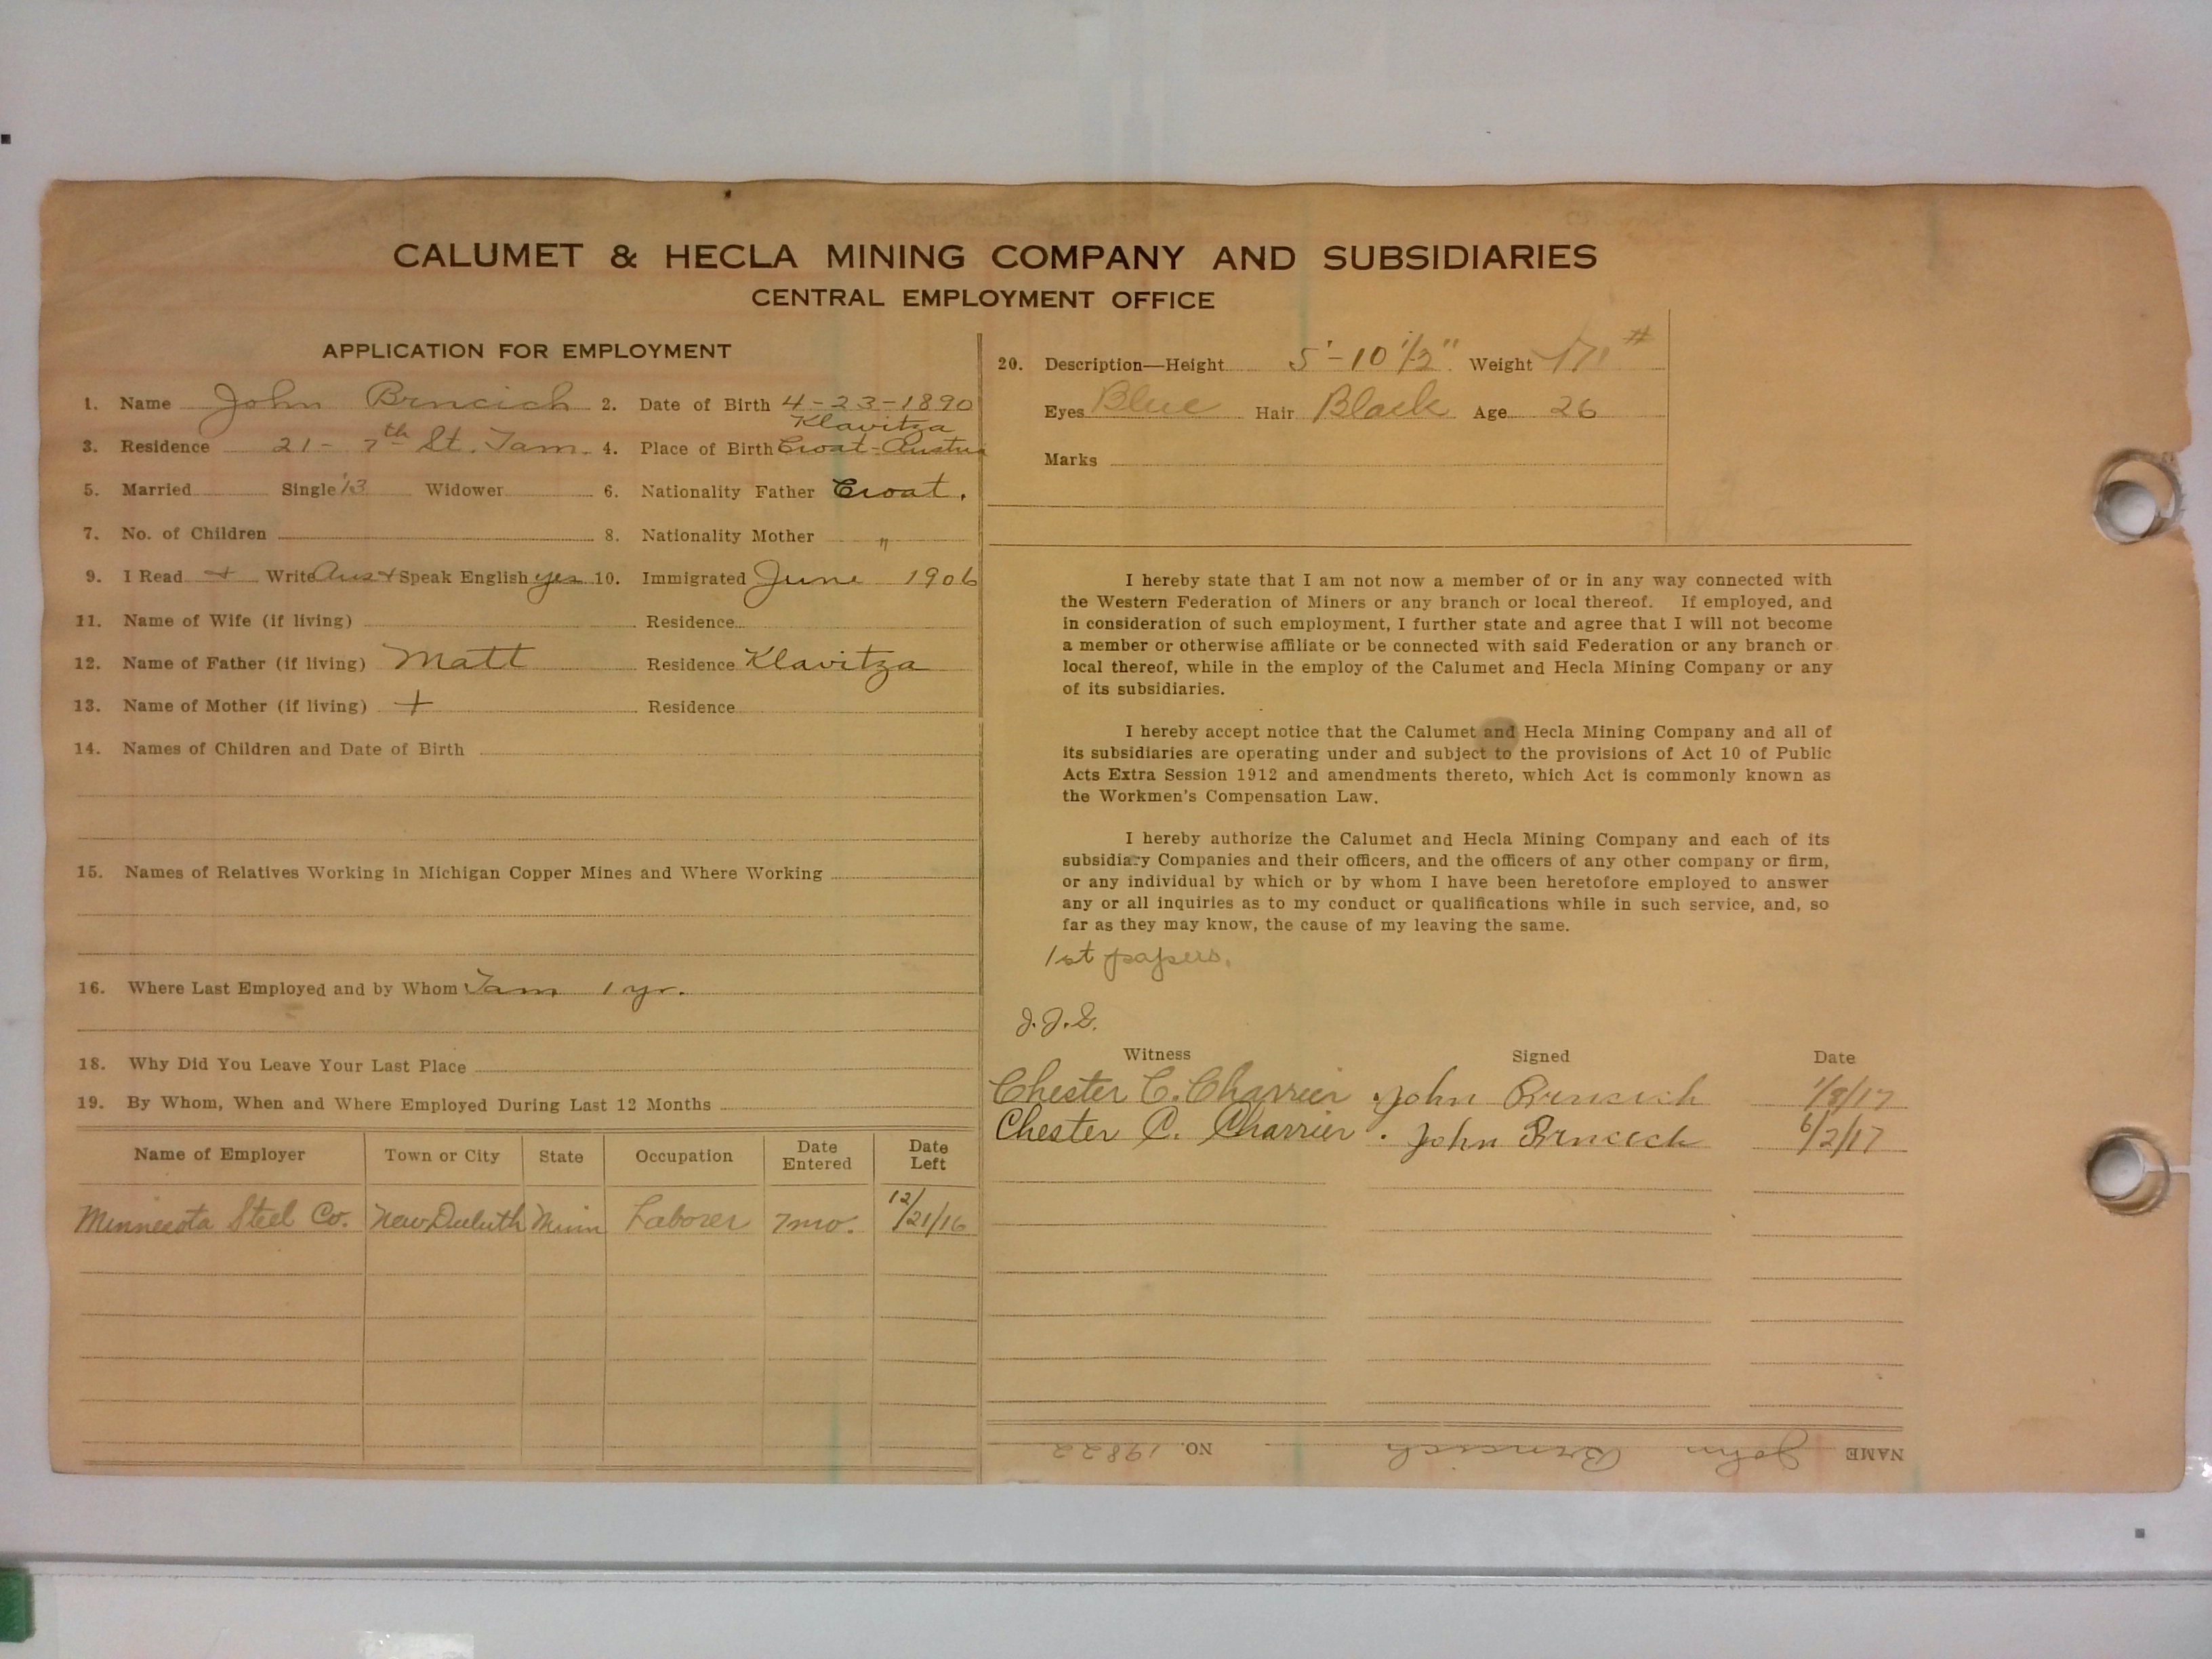 CALUMET & HECLA MINING COMPANY AND SUBSIDIARIES
CENTRAL EMPLOYMENT OFFICE
APPLICATION FOR EMPLOYMENT
1. Name John Brncich 2. Date of Birth 4-23-1890
Klavitza
3. Residence 21- 7th St. Tam. 4. Place of Birth Croat-Austria
5. Married Single Widower 6. Nationality Father Croat.
7. No. of Children 8. Nationality Mother "
9. I Read + Write Aust Speak English yes 10. Immigrated June 1906
11. Name of Wife (if living) Residence
12. Name of Father (if living) Matt Residence Klavitza
13. Name of Mother (if living) + Residence
14. Names of Children and Date of Birth
15. Names of Relatives Working in Michigan Copper Mines and Where Working
16. Where Last Employed and by Whom Tam 1 yr.
18. Why Did You Leave Your Last Place
19. By Whom, When and Where Employed During Last 12 Months
Name of Employer Town or City State Occupation Date Entered Date Left
Minnesota Steel Co. New Duluth Minn Laborer 7 mo. 12/21/16
20. Description—Height 5'-10 1/2" Weight 171#
Eyes Blue Hair Black Age 26
Marks
I hereby state that I am not now a member of or in any way connected with
the Western Federation of Miners or any branch or local thereof. If employed, and
in consideration of such employment, I further state and agree that I will not become
a member or otherwise affiliate or be connected with said Federation or any branch or
local thereof, while in the employ of the Calumet and Hecla Mining Company or any
of its subsidiaries.
I hereby accept notice that the Calumet and Hecla Mining Company and all of
its subsidiaries are operating under and subject to the provisions of Act 10 of Public
Acts Extra Session 1912 and amendments thereto, which Act is commonly known as
the Workmen's Compensation Law.
I hereby authorize the Calumet and Hecla Mining Company and each of its
subsidiary Companies and their officers, and the officers of any other company or firm,
or any individual by which or by whom I have been heretofore employed to answer
any or all inquiries as to my conduct or qualifications while in such service, and, so
far as they may know, the cause of my leaving the same.
1st papers.
J.J.S.
Witness Signed Date
Chester C. Charrier John Brncich 1/8/17
Chester C. Charrier John Brncich 6/2/17
NAME John Brncich NO. 19822